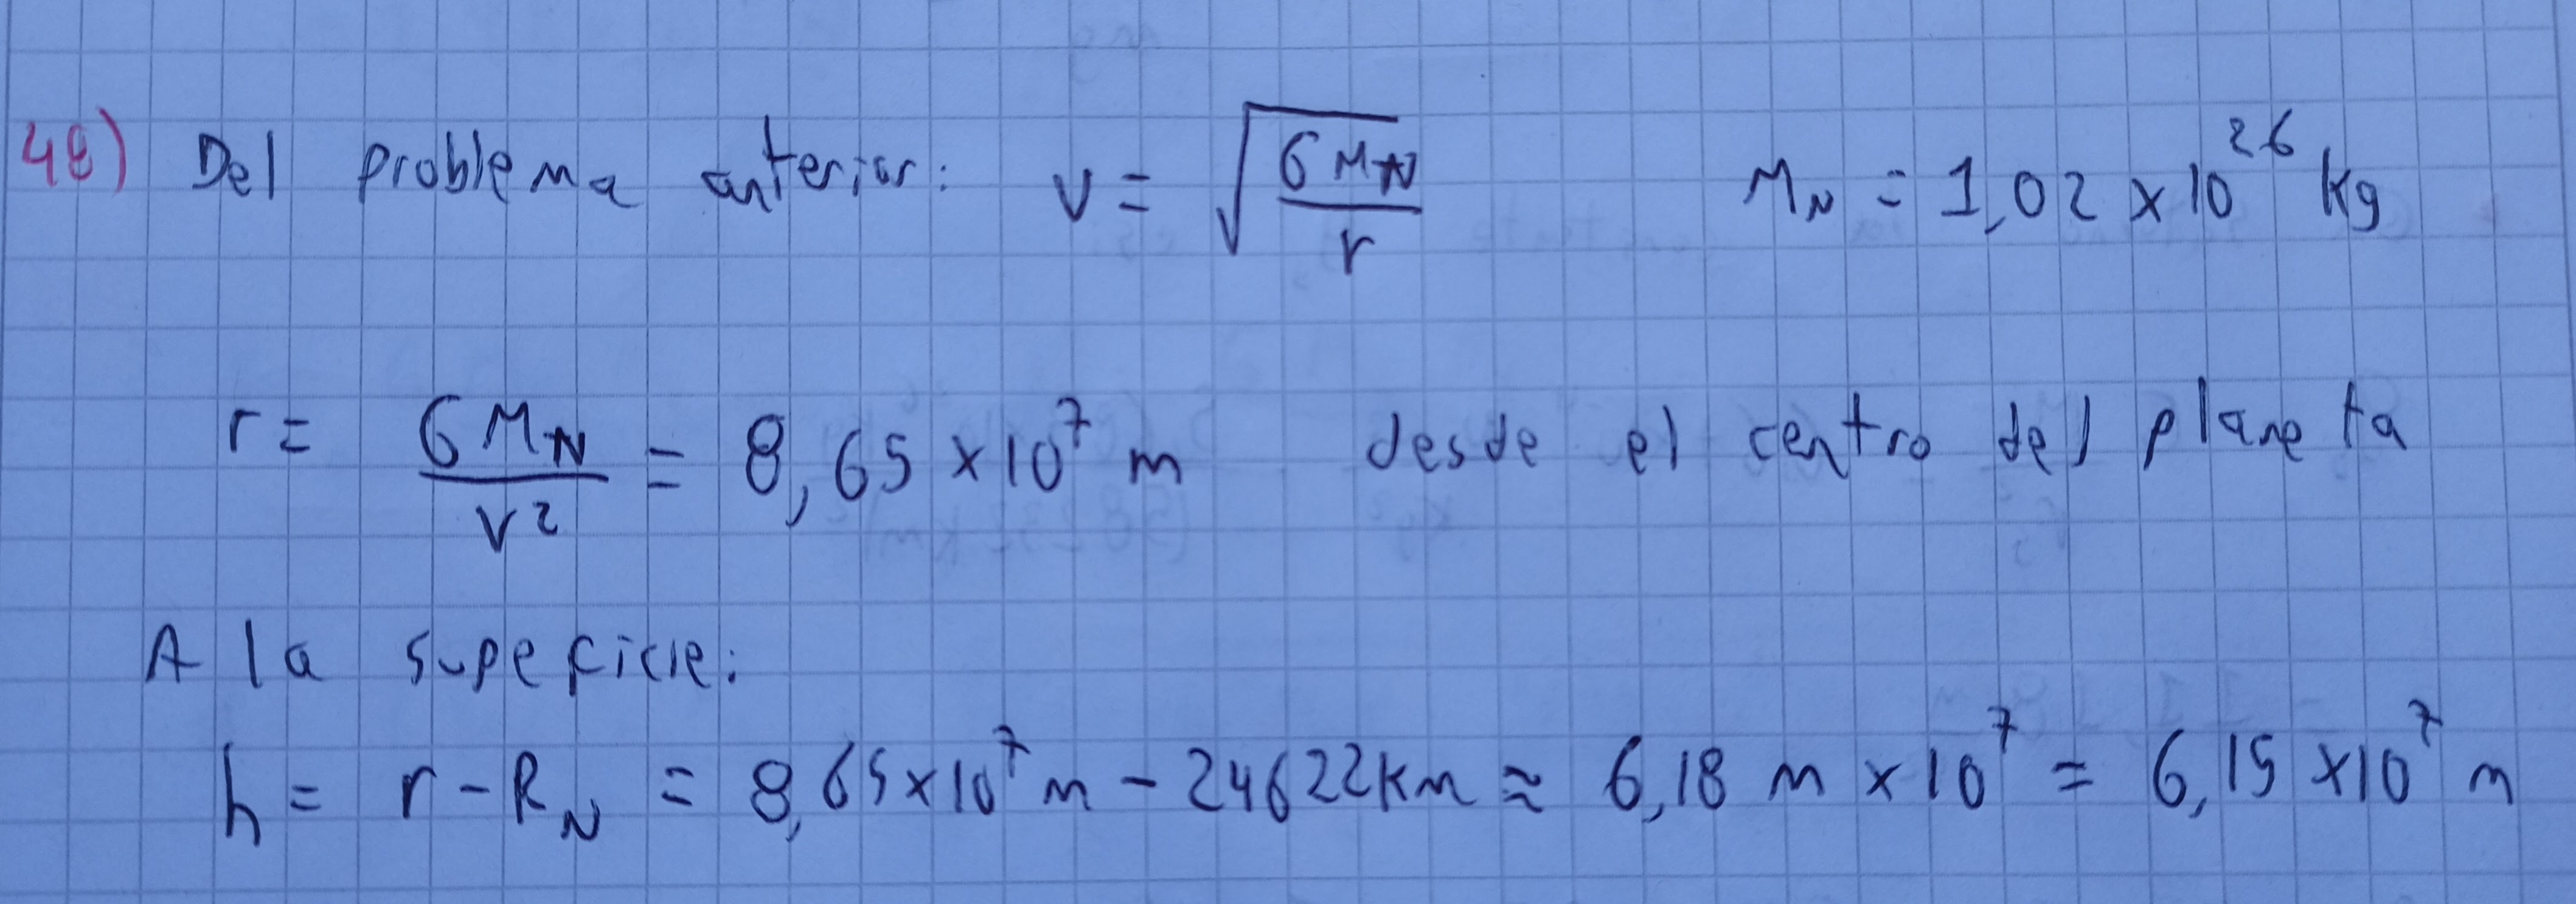 48) Del problema anterior: v = √(G M_N / r) M_N = 1,02 x 10^26 kg
r = G M_N / v² = 8,65 x 10^7 m desde el centro del planeta
A la supeficie:
h = r - R_N = 8,65 x 10^7 m - 24622 km ≈ 6,18 m x 10^7 = 6,15 x 10^7 m